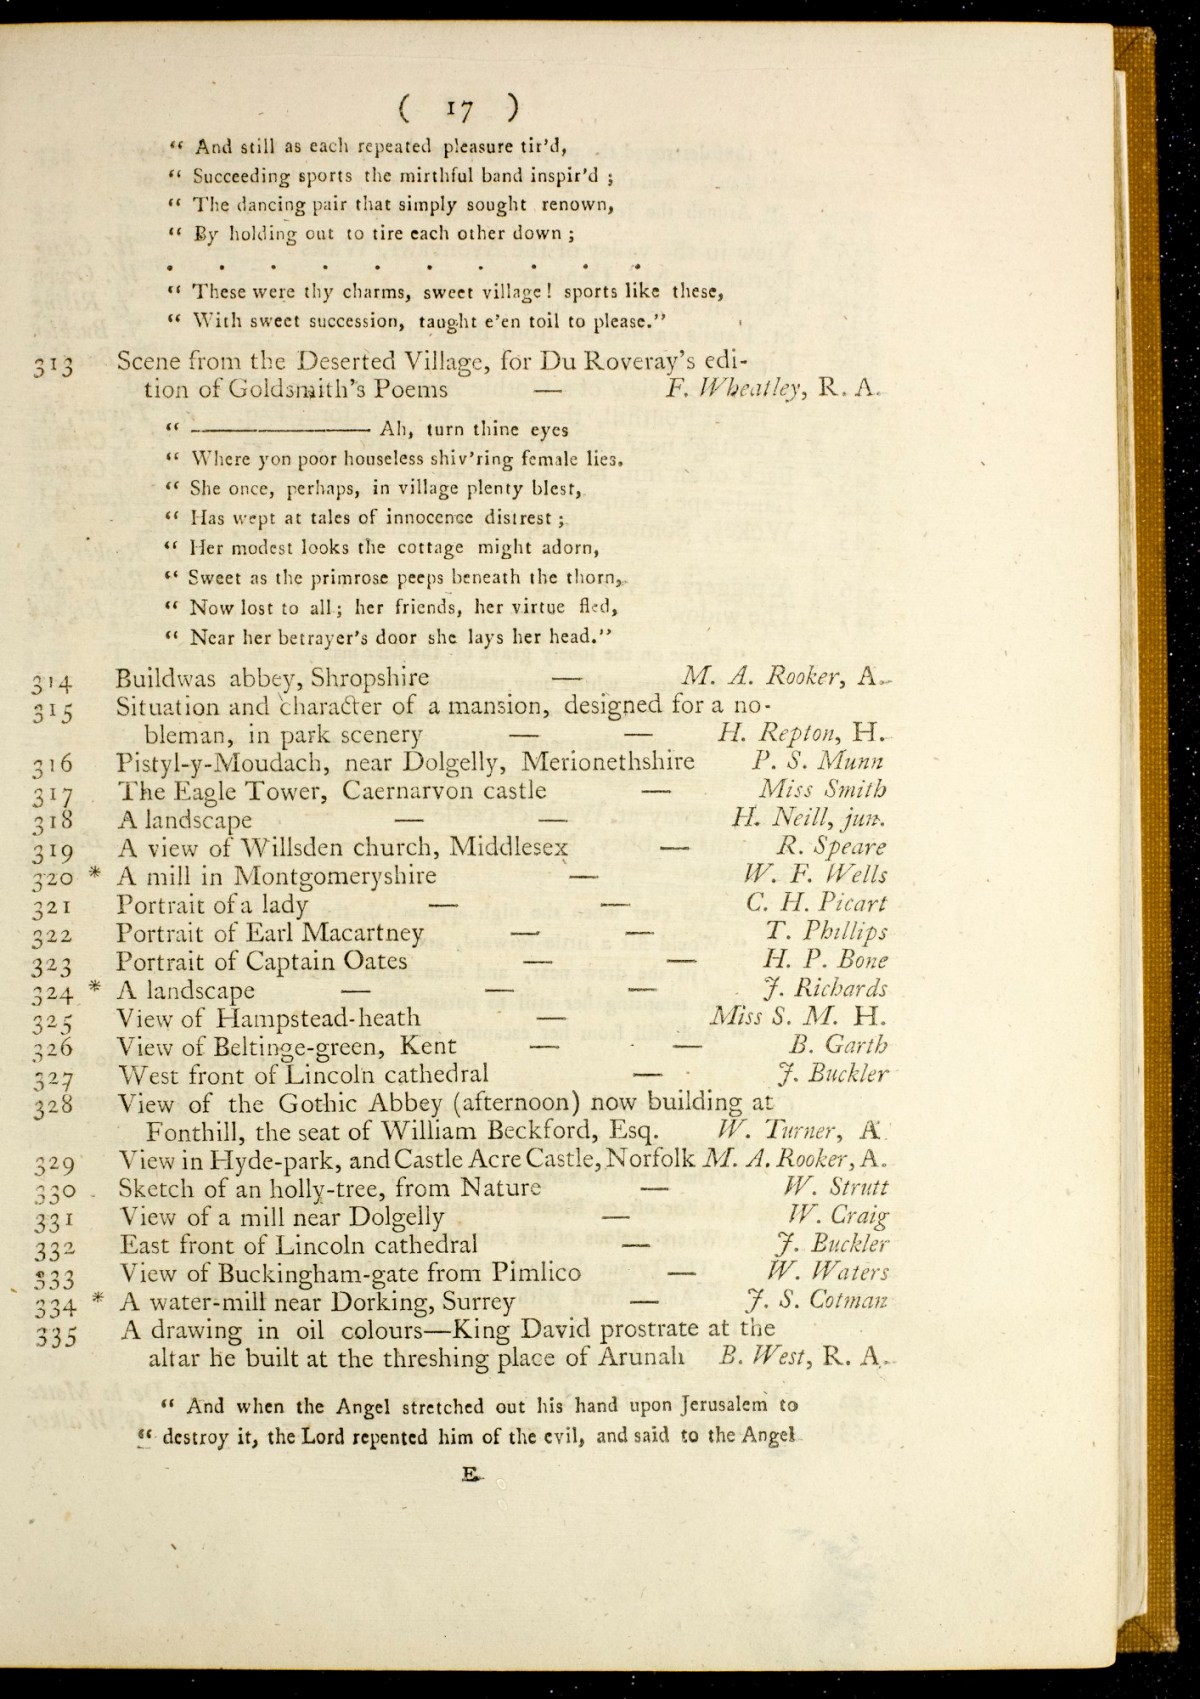 ( 17 )
“ And still as each repeated pleasure tir’d,
“ Succeeding sports the mirthful band inspir’d ;
“ The dancing pair that simply sought renown,
“ By holding out to tire each other down ;
. . . . . . . . . .
“ These were thy charms, sweet village! sports like these,
“ With sweet succession, taught e’en toil to please.”
313 Scene from the Deserted Village, for Du Roveray’s edi-
tion of Goldsmith’s Poems — F. Wheatley, R. A.
“ ———— Ah, turn thine eyes
“ Where yon poor houseless shiv’ring female lies.
“ She once, perhaps, in village plenty blest,
“ Has wept at tales of innocence distrest ;
“ Her modest looks the cottage might adorn,
“ Sweet as the primrose peeps beneath the thorn,
“ Now lost to all ; her friends, her virtue fled,
“ Near her betrayer’s door she lays her head.”
314 Buildwas abbey, Shropshire — M. A. Rooker, A.
315 Situation and character of a mansion, designed for a no-
bleman, in park scenery — — H. Repton, H.
316 Pistyl-y-Moudach, near Dolgelly, Merionethshire P. S. Munn
317 The Eagle Tower, Caernarvon castle — Miss Smith
318 A landscape — — H. Neill, jun.
319 A view of Willsden church, Middlesex — R. Speare
320 * A mill in Montgomeryshire — W. F. Wells
321 Portrait of a lady — — C. H. Picart
322 Portrait of Earl Macartney — — T. Phillips
323 Portrait of Captain Oates — — H. P. Bone
324 * A landscape — — — J. Richards
325 View of Hampstead-heath — Miss S. M. H.
326 View of Beltinge-green, Kent — — B. Garth
327 West front of Lincoln cathedral — J. Buckler
328 View of the Gothic Abbey (afternoon) now building at
Fonthill, the seat of William Beckford, Esq. W. Turner, A
329 View in Hyde-park, and Castle Acre Castle, Norfolk M. A. Rooker, A.
330 Sketch of an holly-tree, from Nature — W. Strutt
331 View of a mill near Dolgelly — W. Craig
332 East front of Lincoln cathedral — J. Buckler
333 View of Buckingham-gate from Pimlico — W. Waters
334 * A water-mill near Dorking, Surrey — J. S. Cotman
335 A drawing in oil colours—King David prostrate at the
altar he built at the threshing place of Arunah B. West, R. A.
“ And when the Angel stretched out his hand upon Jerusalem to
“ destroy it, the Lord repented him of the evil, and said to the Angel
E